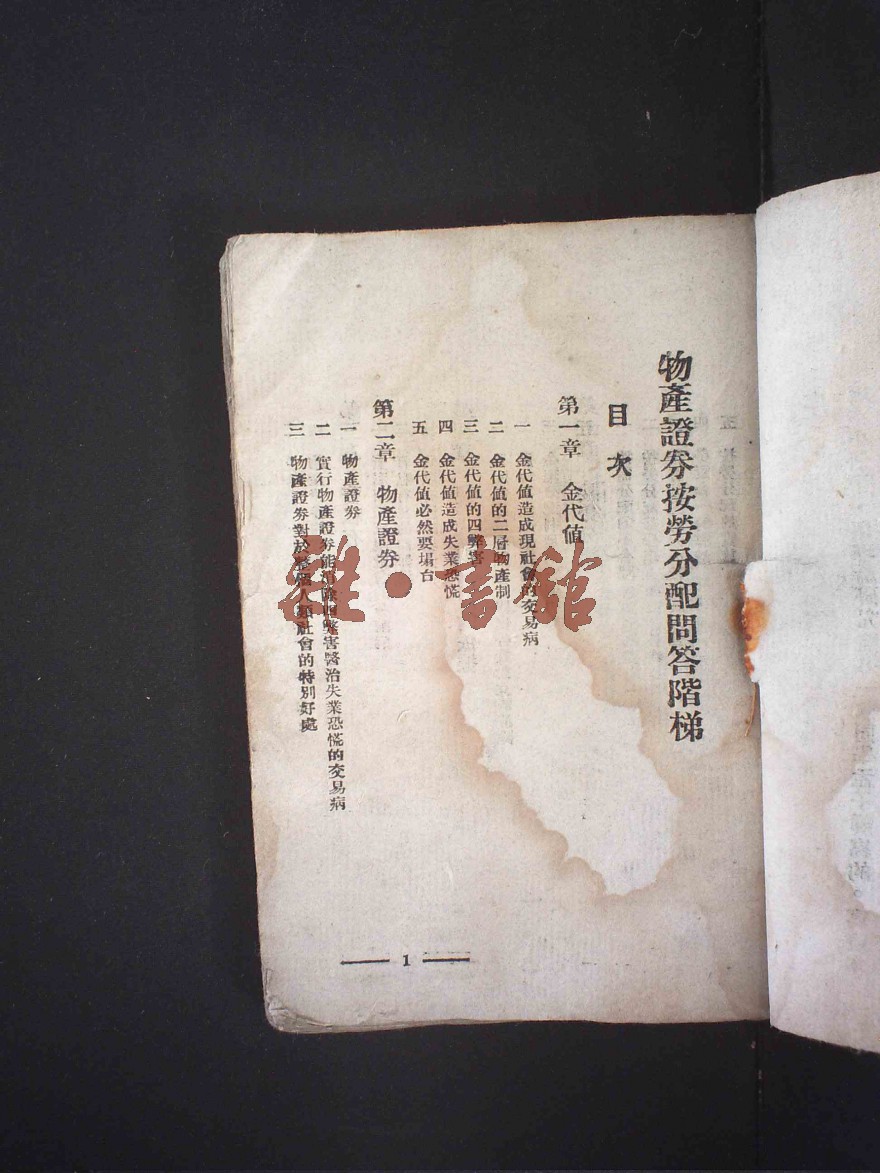 物產證券按勞分配問答階梯
目次
第一章 金代值
一 金代值造成現社會的交易病
二 金代值的二層物產制
三 金代值的四弊害
四 金代值造成失業恐慌
五 金代值必然要塌台
第二章 物產證券
一 物產證券
二 實行物產證券能消除四弊害醫治失業恐慌的交易病
三 物產證券對於整個人類社會的特別好處
1
雜·書館